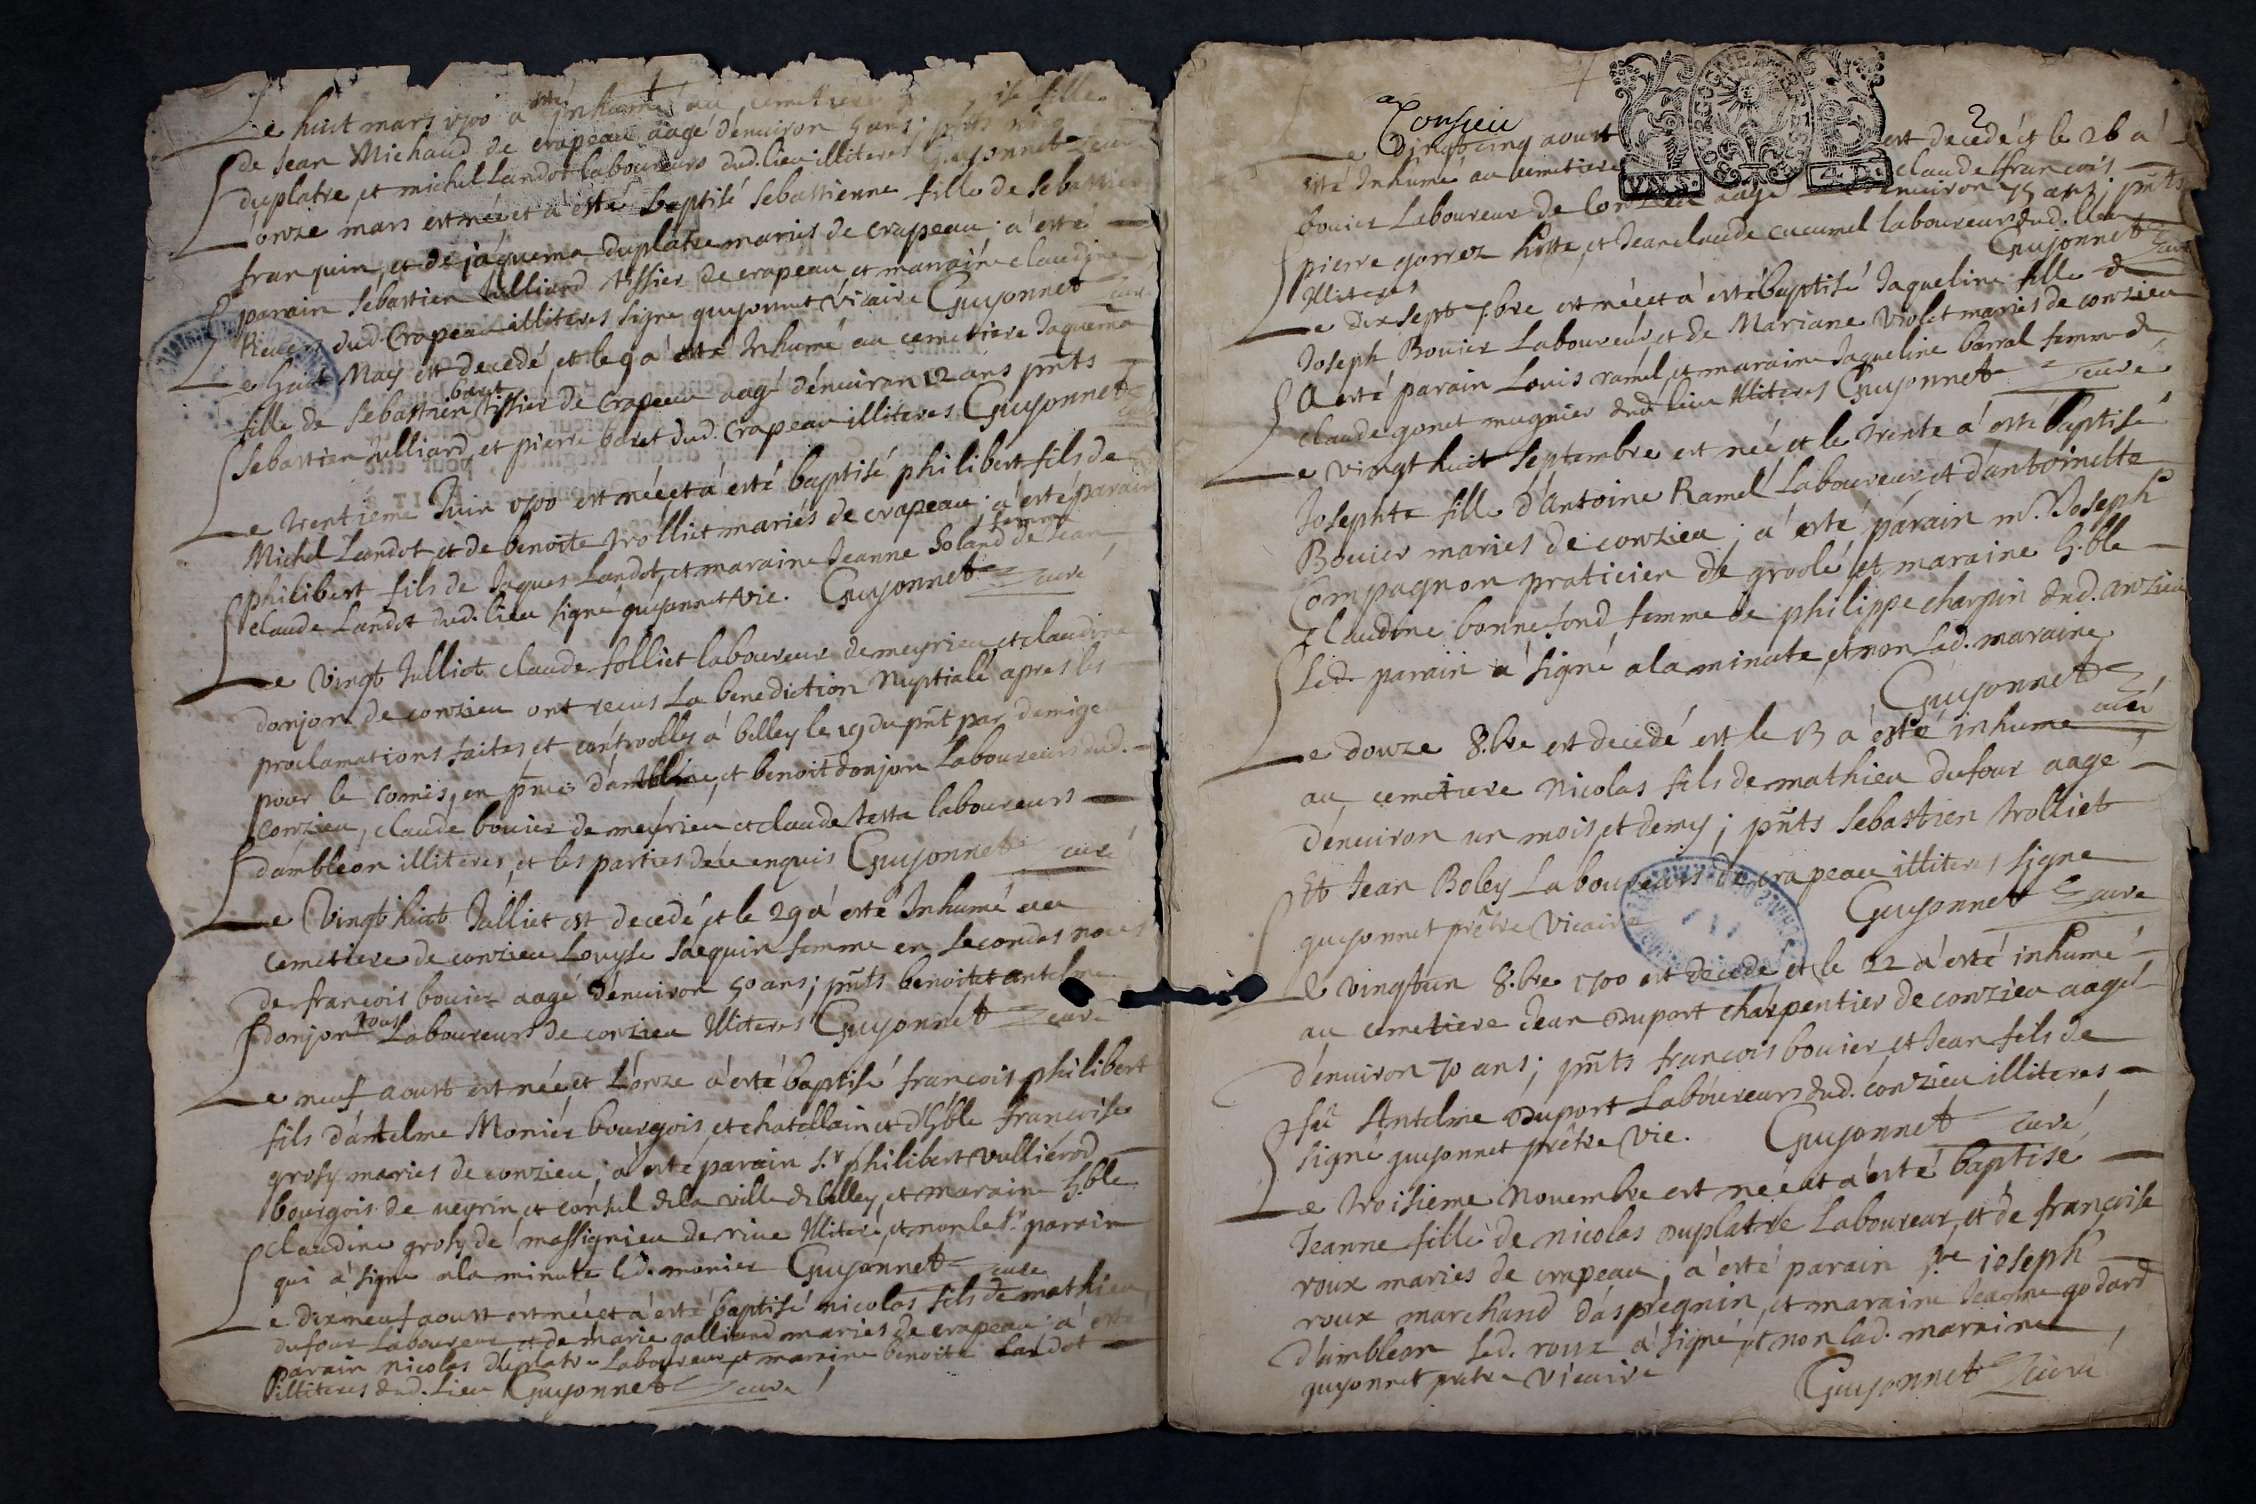 Le huit mars 1700 a esté Inhumé au cemetiere fille
de Jean Michaud de crapeau aagé d'enuiron 5 ans; pn̄ts
duplatre et michel Landot laboureurs dud. lieu illiteres Guyonnet curé
L'onze mars est née et à esté baptisé Sebastienne fille de Sebastien
franquin, et de jaquema duplatre mariés de crapeau; a'esté
parain Sebastien Julliard tissier de crapeau, et maraine claudine
dud. Crapeau illiteres signe guyonnet vicaire Guyonnet curé
Le huit May est decedé et le 9 a esté Inhumé au cemetiere Jaquema
fille de Sebastien baret tissier de crapeau aagé d'enuiron 12 ans pn̄ts
Sebastien Julliard, et pierre baret dud. Crapeau illiteres Guyonnet curé
Le trentieme Juin 1700 est née et à esté baptisé philibert fils de
Michel Landot et de benoite trolliet mariés de crapeau; a'esté parain
philibert fils de Jaques Landot, et maraine Jeanne Soland femme de Jean
claude Landot dud. lieu signé guyonnet vic. Guyonnet curé
Le vingt Julliet claude folliet laboureur de meyrieu et claudine
donjon de conzieu ont recus La benediction Nuptiale apres les
proclamations faites, et controolles à belley le 19 du pn̄t par demige
pour le comis, en pn̄ces d'antelme, et benoit donjon Laboureurs dud.
conzieu, claude bouier de meyrieu et claude testa laboureurs
d'ambléon illiteres, et les parties de ce enquis Guyonnet curé
Le Vingt huit Julliet est decedé et le 29 a' esté Inhumé au
cemetiere de conzieu Louyse Jaequin femme en secondes noces
de francois bouier aagé d'enuiron 50 ans; pn̄ts benoit et antelme
donjon tous Laboureurs de conzieu Illiteres Guyonnet curé
Le neuf aoust est née et L'onze a'esté baptisé francois philibert
fils d'antelme Monier bourgois et chatellain et d'h.ble francoise
grosy mariés de conzieu; a'esté parain s.r philibert vulliérod
bourgois de ueyrin, et consul de la ville de belley, et maraine h.ble
claudine grosy de massignieu de riue Illitere, et non le s.r parain
qui a' signe a la minute led. monier Guyonnet curé
Le dixneuf aoust est née et a' esté baptisé nicolas fils de mathieu
dufour Laboureur et de marie galliard mariés de crapeau; a' esté
parain nicolas duplatre Laboureur et maraine benoite Landot
illiteres dud. Lieu Guyonnet curé
Consieu
2
GNE
VN.S.
4 D.
Le vingt cinq aoust est decedé et le 26 a'
esté Inhumé au cemetiere claude francois
bouier Laboureur de Conzieu aagé d'enuiron 15 ans; pn̄ts
pierre gorrez hoste, et Jean claude cucumel laboureurs dud. lieu
Illiteres Guyonnet curé
Le dix sept 7bre est née et a' esté baptisé Jaqueline fille de
Joseph Bouier Laboureur et de Mariane Violet mariés de conzieu
A esté parain Louis ramel, et maraine Jaqueline barral femme de
claude gonet mugnier dud. lieu Illiteres Guyonnet curé
Le vingt huit Septembre est née et le trente a' esté baptisé
Josephte fille d'Antoine Ramel Laboureur et d'antoinette
Bouier mariés de conzieu; a' esté parain m.r Joseph
Compagnon praticien de groolé, et maraine h.ble
Claudine bonnefond femme de philippe charpin dud. conzieu
Led. parain a' signé a la minute, et non Lad. maraine
Guyonnet curé
Le douze 8.bre est decedé est le 13 a' esté inhume
au cemetiere Nicolas fils de mathieu dufour aagé
d'enuiron un mois, et demy; pn̄ts Sebastien trolliet
Et Jean Boley Laboureurs de crapeau illiteres signe
guyonnet prêtre Vicaire Guyonnet curé
Le vingt un 8.bre 1700 est decede et le 22 a' esté inhumé
au cemetiere Jean Duport charpentier de conzieu aagé
d'enuiron 70 ans; pn̄ts francois bouier et Jean fils de
fû Antelme Duport Laboureurs dud. conzieu illiteres
signé guyonnet prêtre Vic. Guyonnet curé
Le troisieme Nouembre est née et a' esté baptisé
Jeanne fille de nicolas Duplatre Laboureur, et de françoise
roux mariés de crapeau; a' esté parain s.r ioseph
roux marchand d'aspregnin, et maraine Jeanne godard
d'ambleon Led. roux a' signé, et non lad. maraine
guyonnet pretre vicaire Guyonnet curé